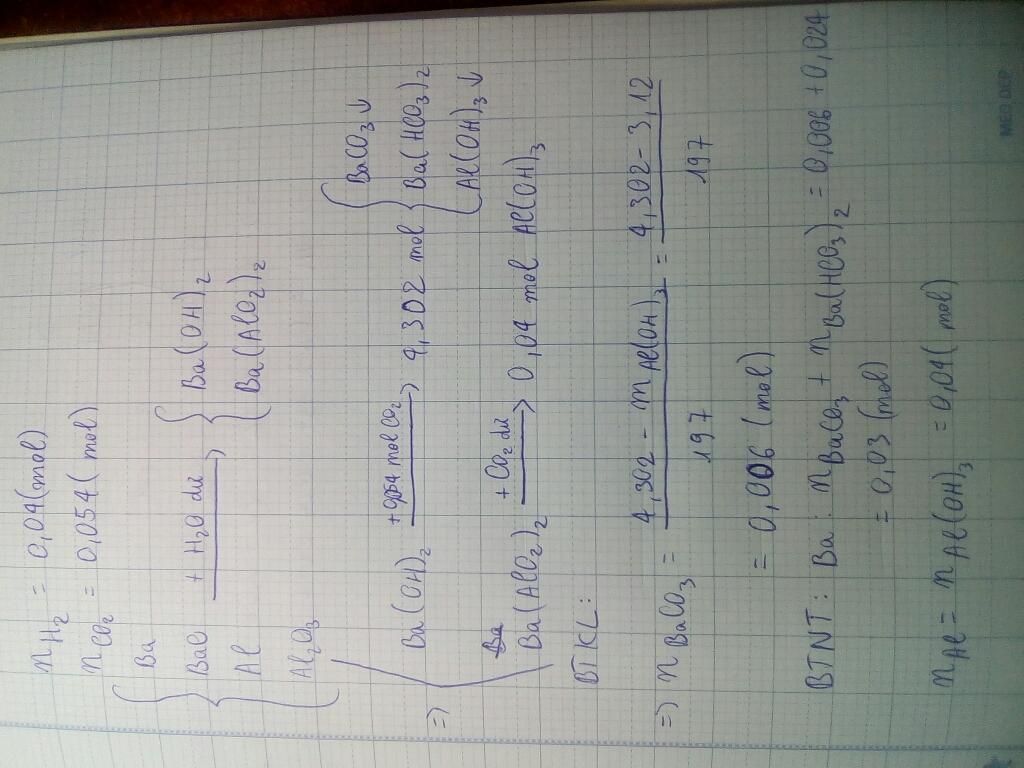 n H₂ = 0,04 (mol)
n CO₂ = 0,054 (mol)
{ Ba BaO Al Al₂O₃ + H₂O dư → { Ba(OH)₂ Ba(AlO₂)₂
=> ( Ba(OH)₂ + 0,054 mol CO₂ → 4,302 mol { BaCO₃↓ Ba(HCO₃)₂ Al(OH)₃↓
Ba(AlO₂)₂ + CO₂ dư → 0,04 mol Al(OH)₃
BTKL:
=> n BaCO₃ = (4,302 - m Al(OH)₃)/197 = (4,302 - 3,12)/197
= 0,006 (mol)
BTNT: Ba: n BaCO₃ + n Ba(HCO₃)₂ = 0,006 + 0,024
= 0,03 (mol)
n Al = n Al(OH)₃ = 0,04 (mol)